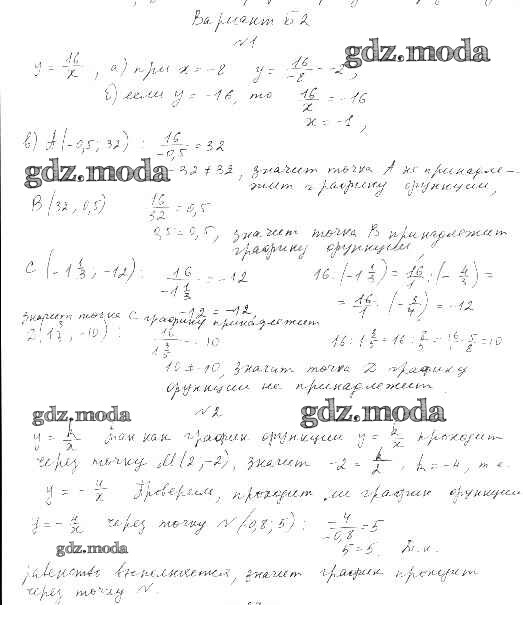 Вариант Б2
№1
gdz.moda
y = 16/x, а) при x = -8 y = 16/-8 = -2,
б) если y = -16, то 16/x = -16
x = -1,
в) A(-0,5; 32) : 16/-0,5 = 32
gdz.moda
-32 ≠ 32, значит точка A не принадле-
жит графику функции,
B(32, 0,5) 16/32 = 0,5
0,5 = 0,5, значит точка B принадлежит
графику функции,
C(-1 1/3, -12) : 16/-1 1/3 = -12 16 : (-1 1/3) = 16/1 : (-4/3) =
= 16/1 · (-3/4) = -12
-12 = -12,
значит точка C графику принадлежит
(1 3/5, -10) : 16/1 3/5 = -10 16 : 1 3/5 = 16 : 8/5 = 16 · 5/8 = 10
10 ≠ -10, значит точка D графику
функции не принадлежит.
№2
gdz.moda gdz.moda
y = k/x так как график функции y = k/x проходит
через точку M(2, -2), значит -2 = k/2, k = -4, т.е.
y = -4/x Проверим, проходит ли график функции
y = -4/x через точку N(-0,8; 5) : -4/-0,8 = 5
gdz.moda 5 = 5. Т.к.
равенство выполняется, значит график проходит
через точку N.